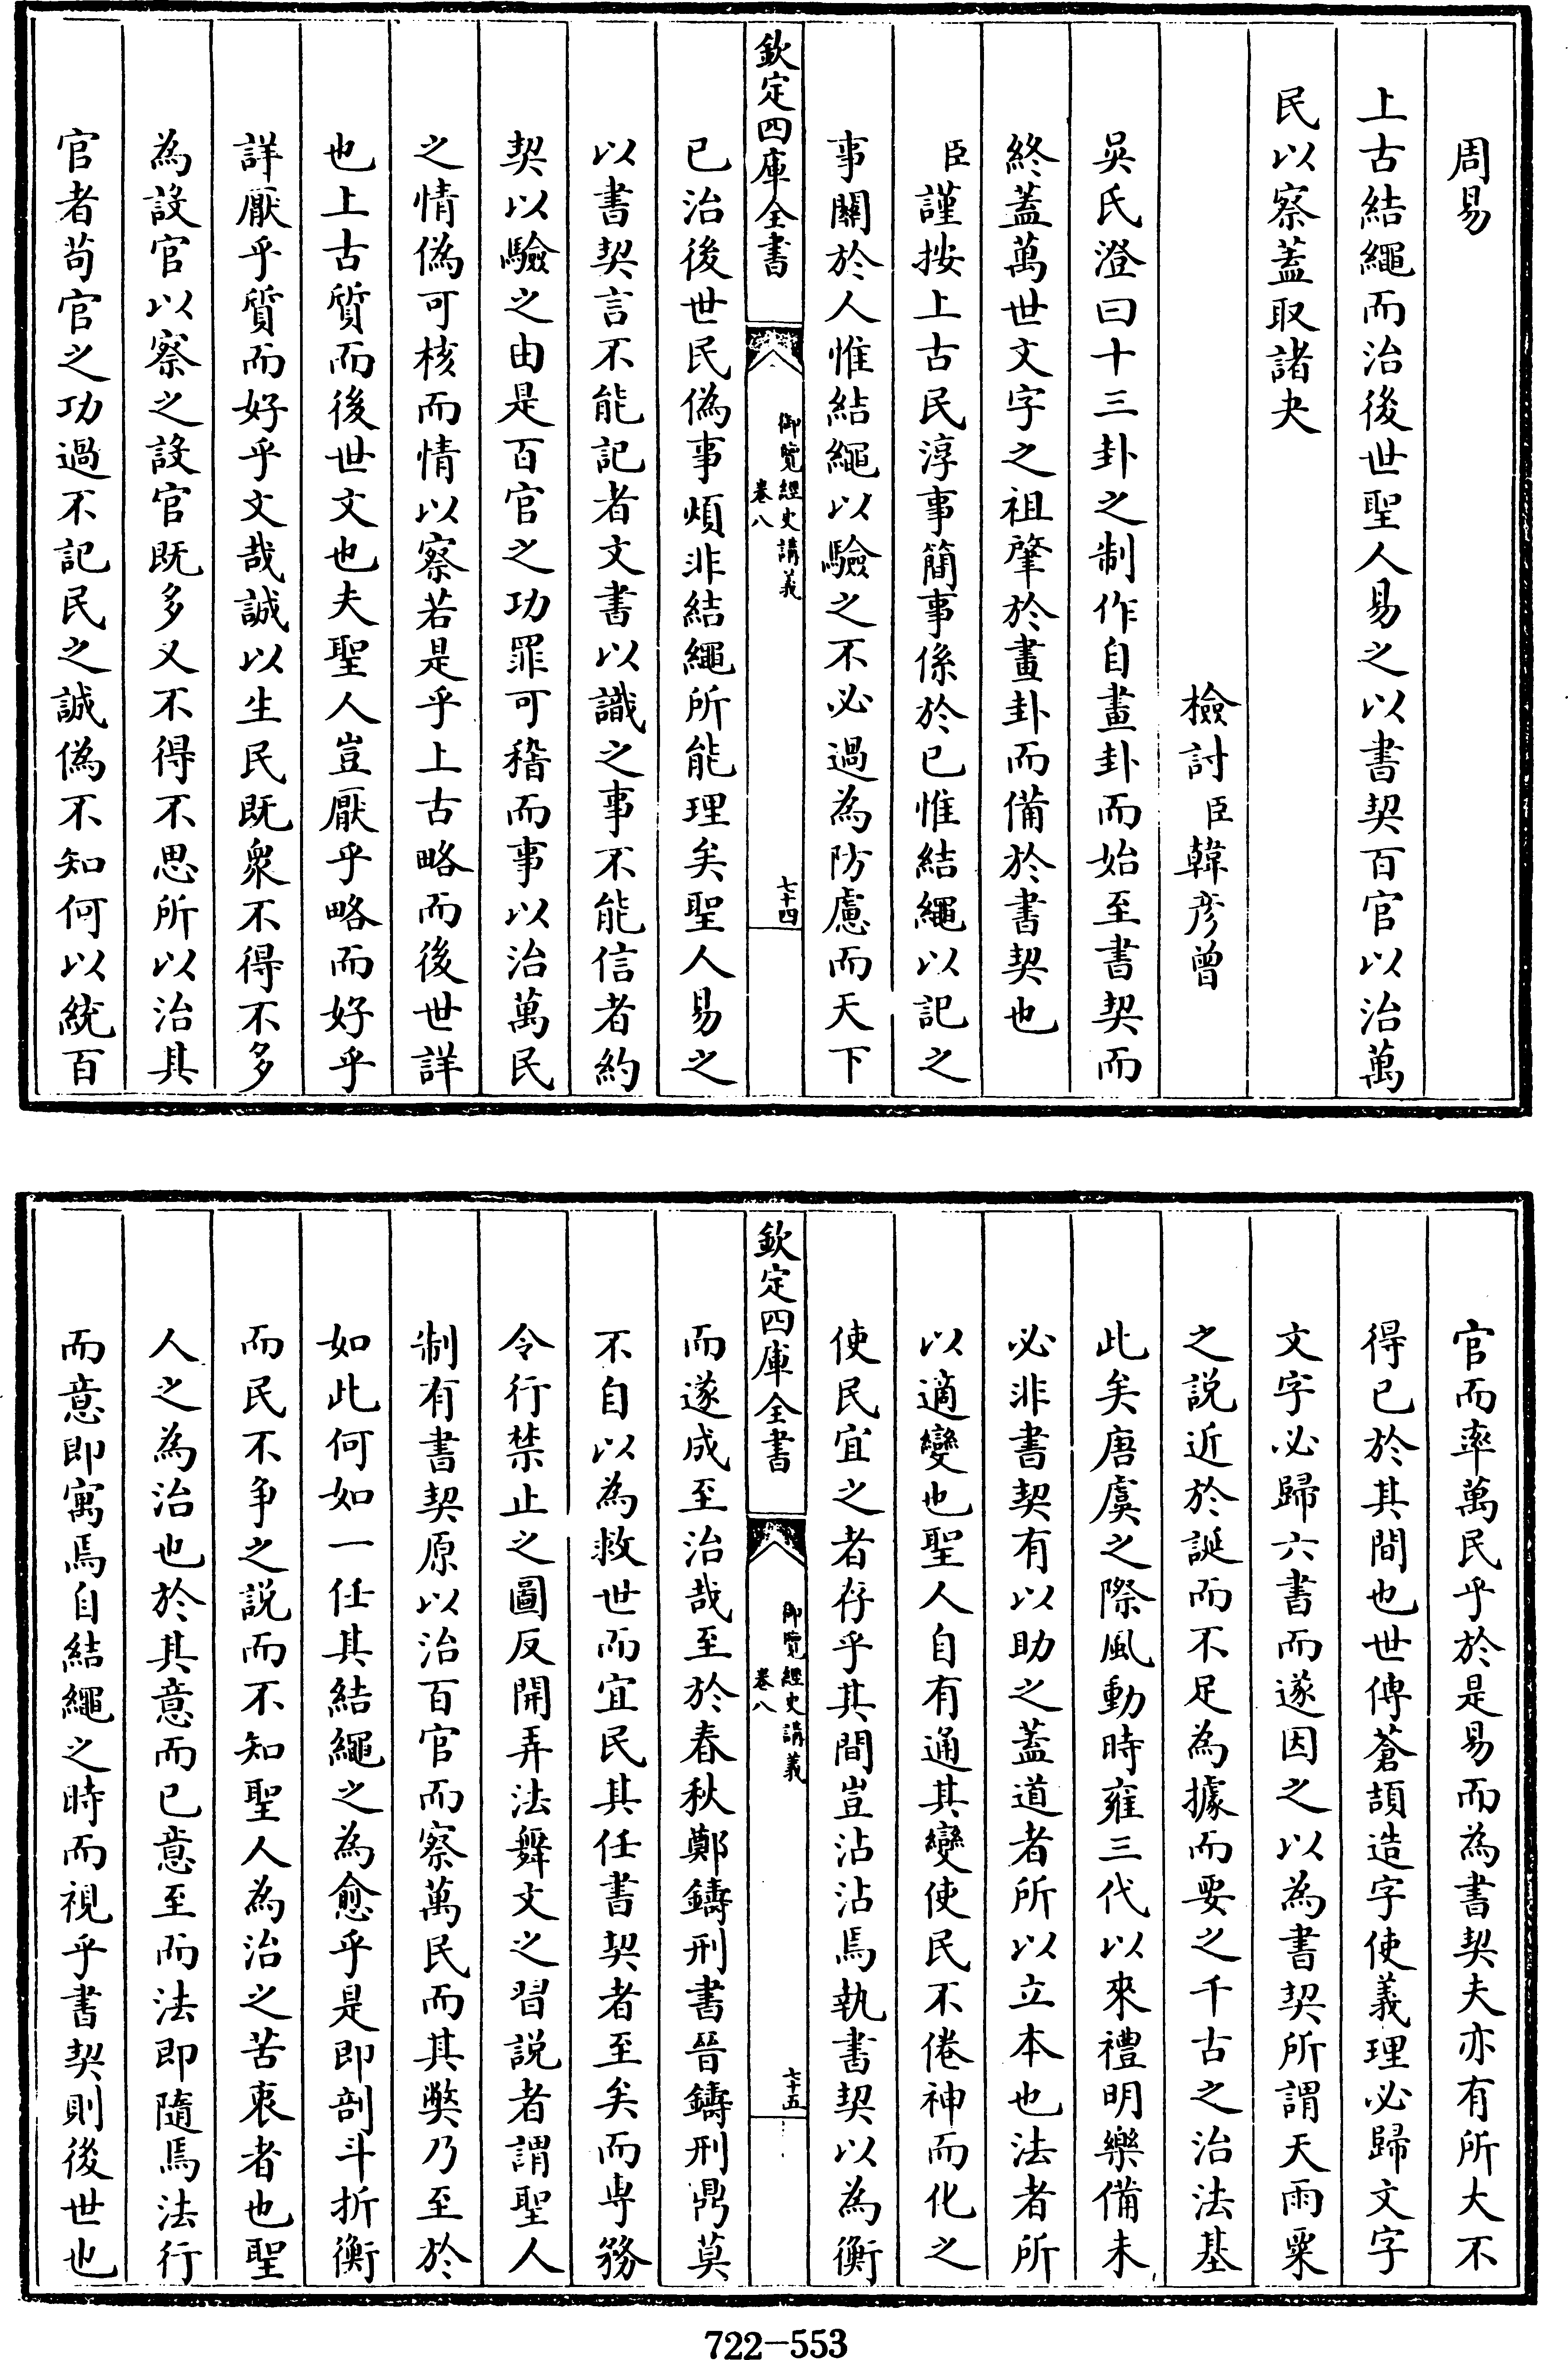 周易
上古結繩而治後世聖人易之以書契百官以治萬
民以察蓋取諸夬
檢討臣韓彥曾
吳氏澄曰十三卦之制作自畫卦而始至書契而
終蓋萬世文字之祖肇於畫卦而備於書契也
臣謹按上古民淳事簡事係於已惟結繩以記之
事關於人惟結繩以驗之不必過為防慮而天下
欽定四庫全書
御覽經史講義
卷八
七十四
已治後世民偽事煩非結繩所能理矣聖人易之
以書契言不能記者文書以識之事不能信者約
契以驗之由是百官之功罪可稽而事以治萬民
之情偽可核而情以察若是乎上古略而後世詳
也上古質而後世文也夫聖人豈厭乎略而好乎
詳厭乎質而好乎文哉誠以生民既衆不得不多
為設官以察之設官既多又不得不思所以治其
官者苟官之功過不記民之誠偽不知何以統百
官而率萬民乎於是易而為書契夫亦有所大不
得已於其間也世傳蒼頡造字使義理必歸文字
文字必歸六書而遂因之以為書契所謂天雨粟
之說近於誕而不足為據而要之千古之治法基
此矣唐虞之際風動時雍三代以來禮明樂備未
必非書契有以助之蓋道者所以立本也法者所
以適變也聖人自有通其變使民不倦神而化之
使民宜之者存乎其間豈沾沾焉執書契以為衡
欽定四庫全書
御覽經史講義
卷八
七十五
而遂成至治哉至於春秋鄭鑄刑書晉鑄刑鼎莫
不自以為救世而宜民其任書契者至矣而専務
令行禁止之圖反開弄法舞文之習說者謂聖人
制有書契原以治百官而察萬民而其獘乃至於
如此何如一任其結繩之為愈乎是即剖斗折衡
而民不争之說而不知聖人為治之苦衷者也聖
人之為治也於其意而已意至而法即隨焉法行
而意即寓焉自結繩之時而視乎書契則後世也
722-553